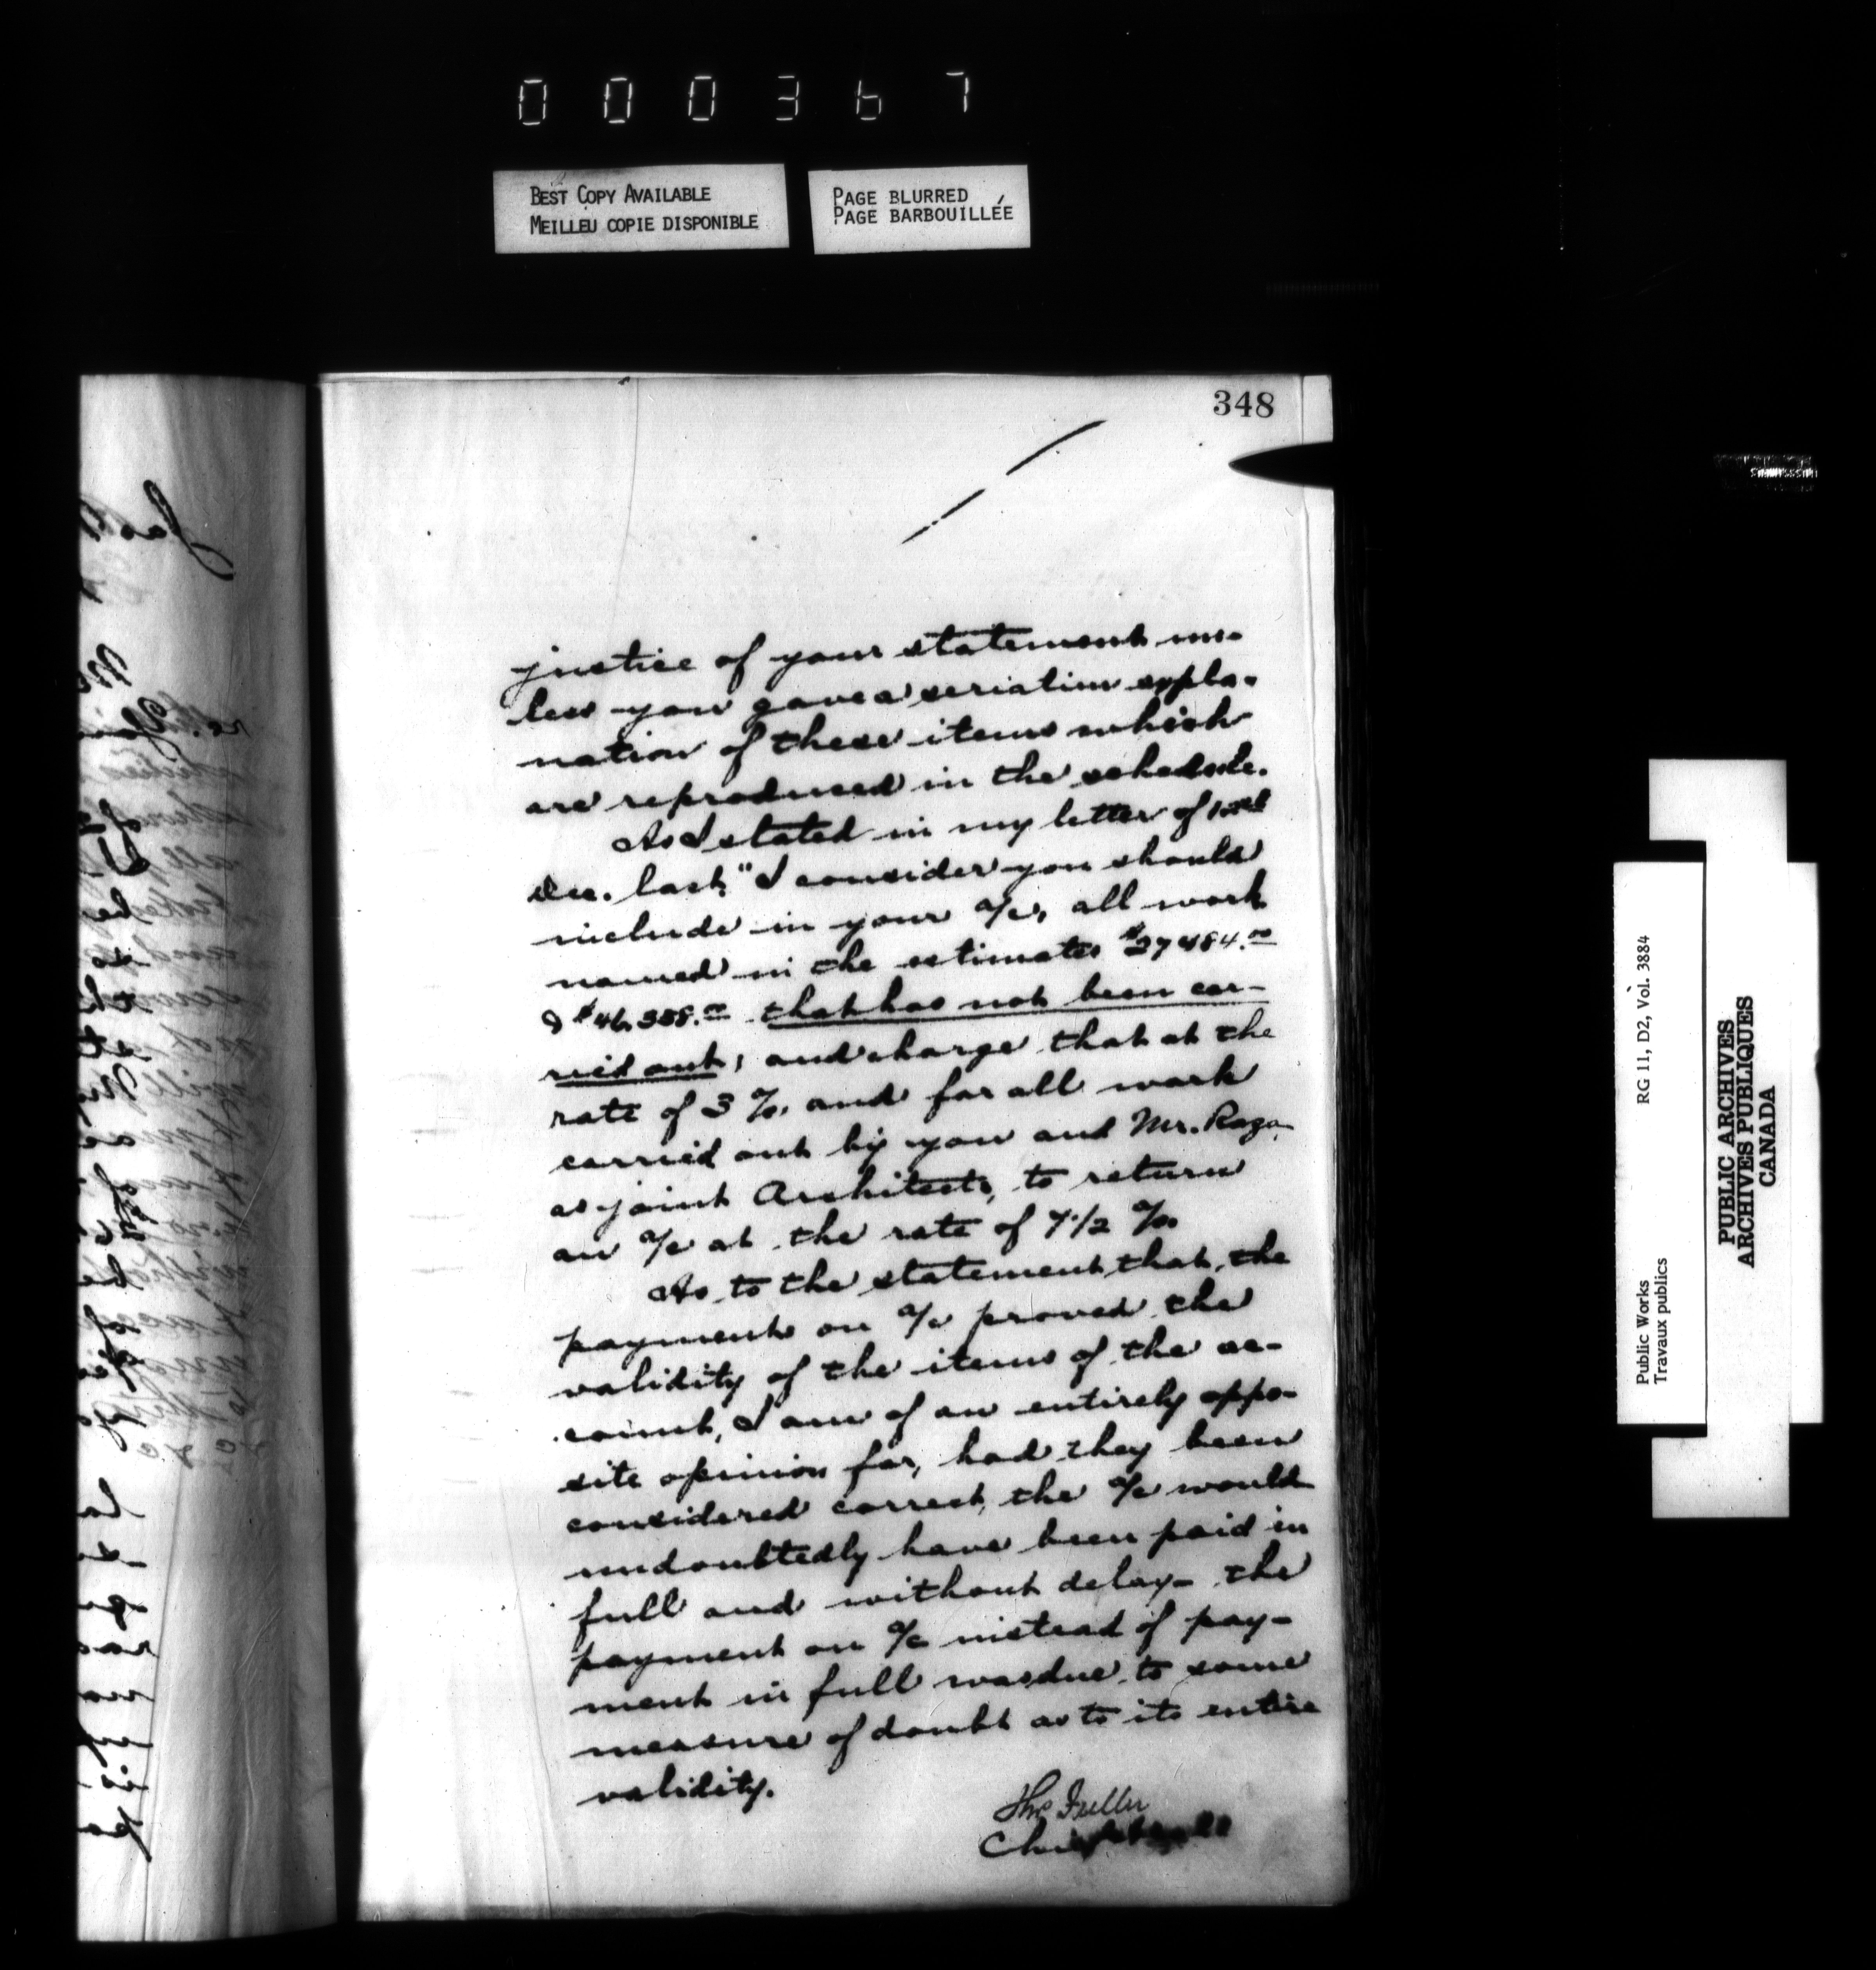 000367
BEST COPY AVAILABLE
MEILLEU COPIE DISPONIBLE
PAGE BLURRED
PAGE BARBOUILLÉE
348
justice of your statement un-
less you gave a seriatim expla-
nation of these items which
are reproduced in the schedule.
As I stated in my letter of
Dec. last, "I consider you should
include in your a/c, all work
named in the estimates $27484.00
& $46,358.00 that has not been car-
ried out; and charge that at the
rate of 3 %, and for all work
carried out by you and Mr.
as joint Architects, to return
an a/c at the rate of 7 1/2 %.
As to the statement that the
payments on a/c proved the
validity of the items of the ac-
count, I am of an entirely oppo-
site opinion for, had they been
considered correct, the a/c would
undoubtedly have been paid in
full and without delay - the
payment on a/c instead of pay-
ment in full was due to some
measure of doubt as to its entire
validity.
Thos Fuller
Chief
RG 11, D2, Vol. 3884
Public Works
Travaux publics
PUBLIC ARCHIVES
ARCHIVES PUBLIQUES
CANADA